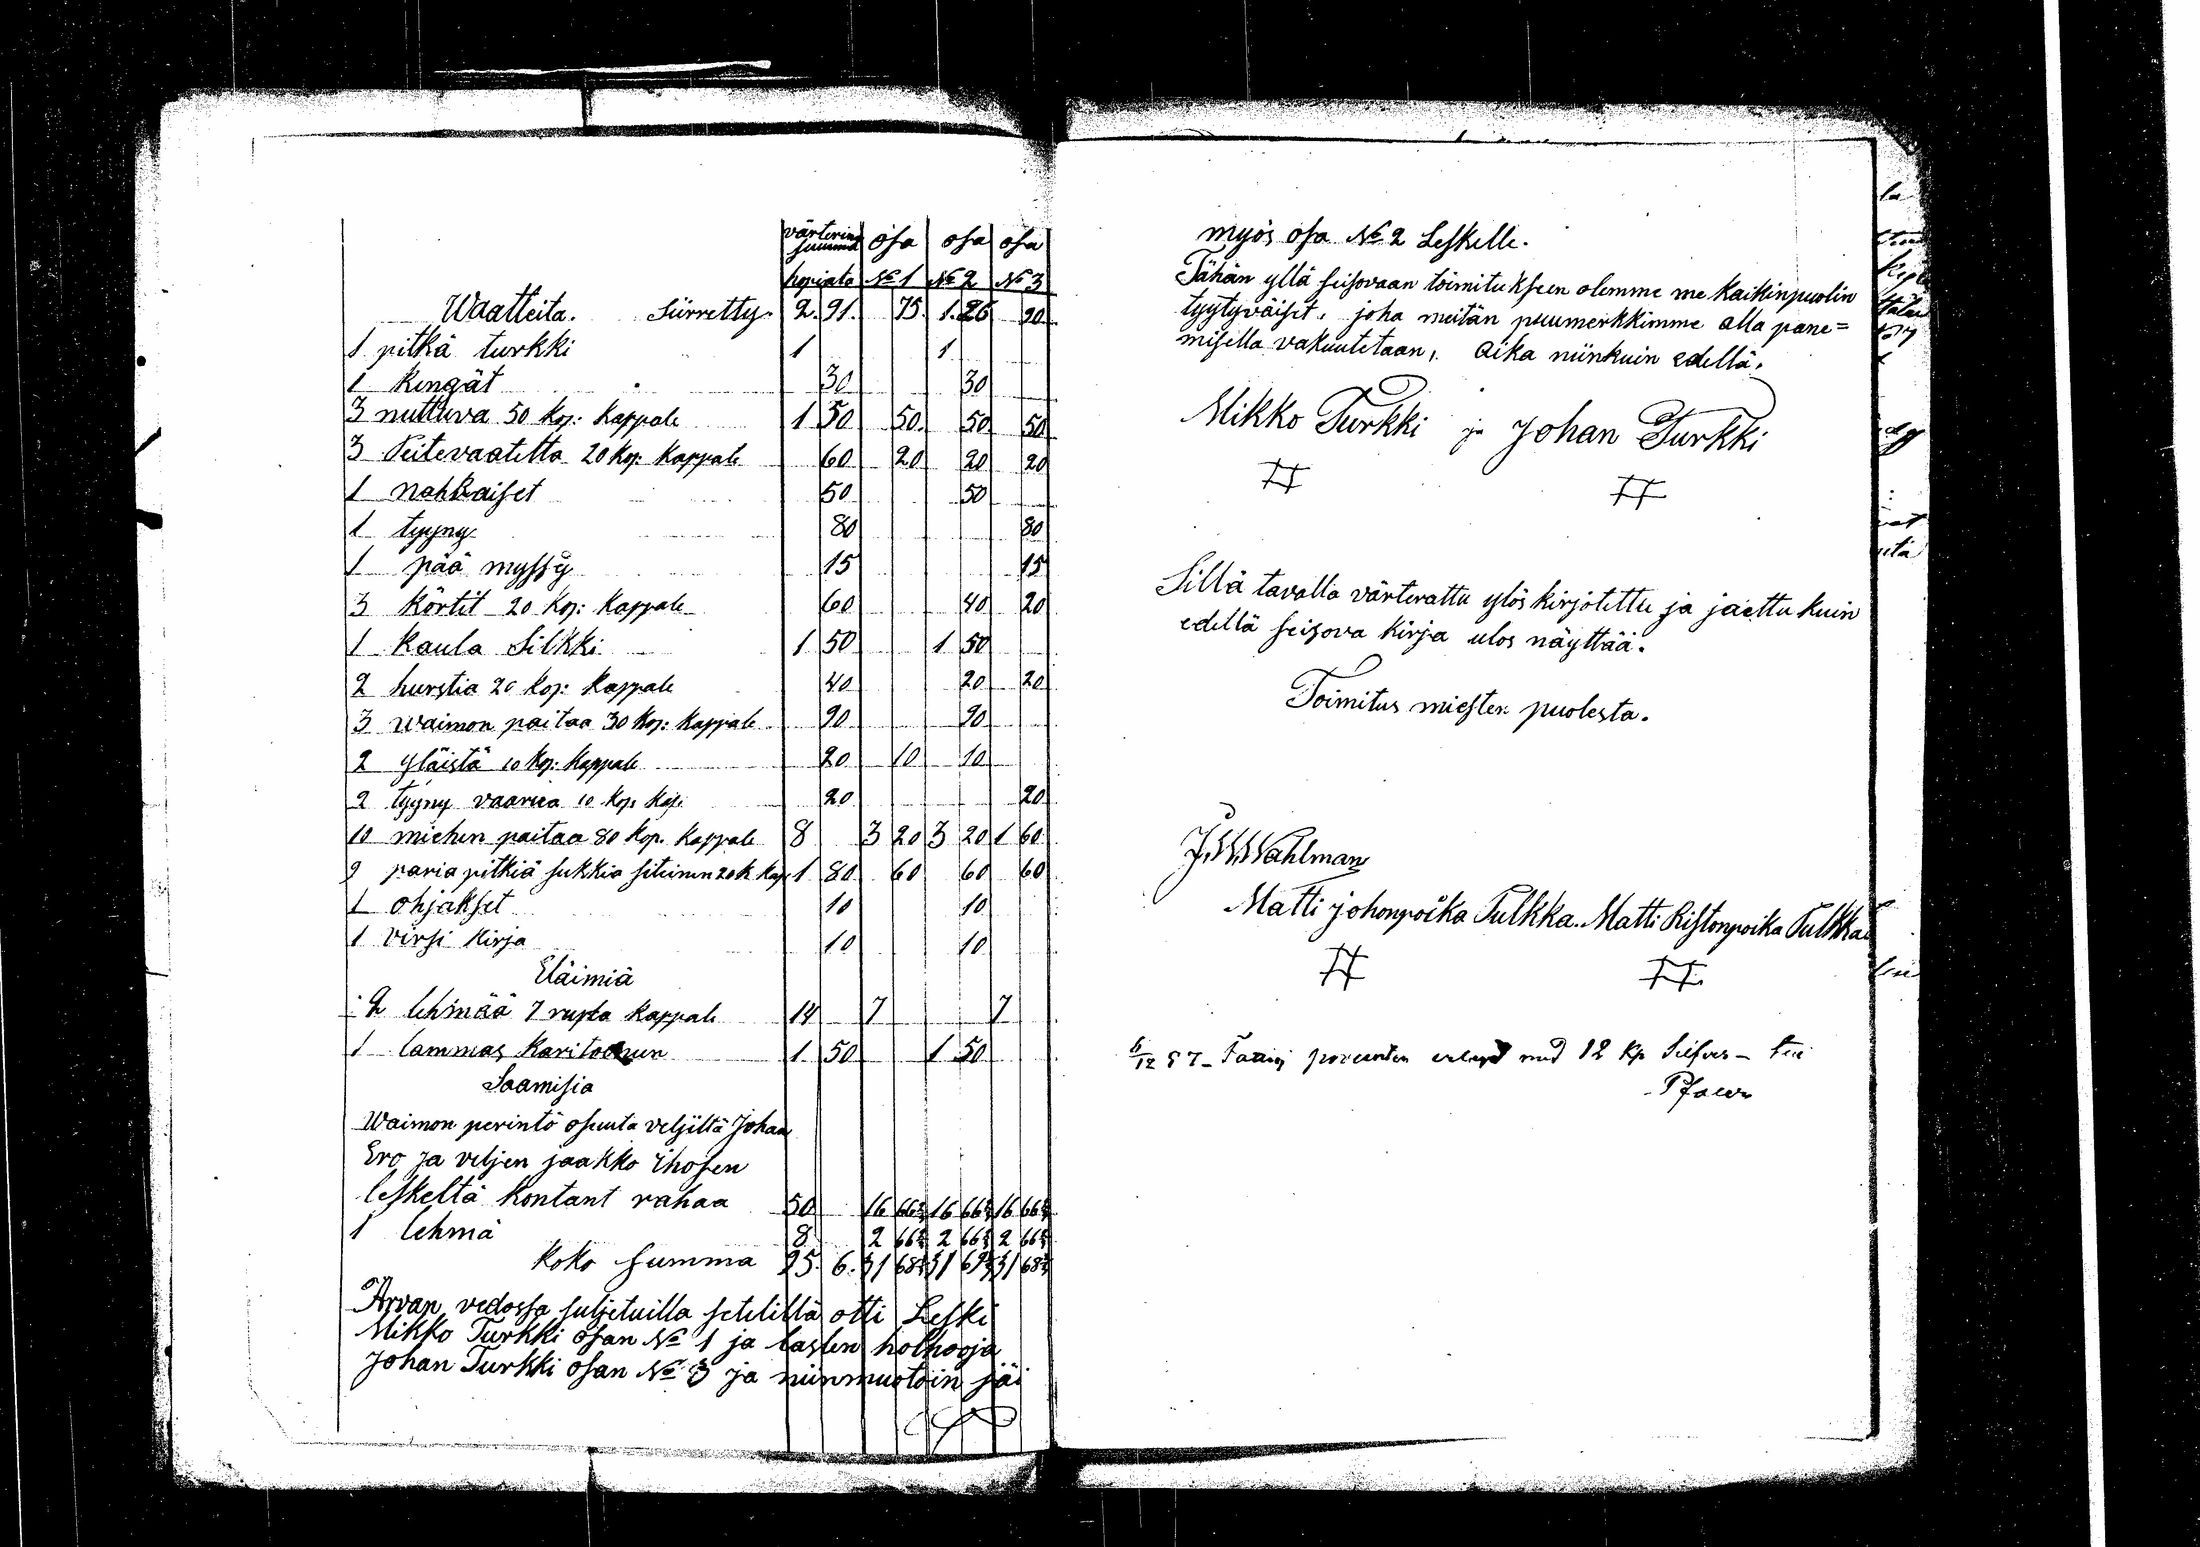 värtering summa osa osa osa
hopiata № 1 № 2 № 3
Waatteita. Siirretty. 2. 91. 75. 1. 26 90
1 pitkä turkki 1 1
1 Kengät 30 30
3 nuttuva 50 Kop: Kappale 1 50 50. 50 50
3 Peitevaatetta 20 Kop: Kappale 60 20 20 20
1 Nahkaiset 50 50
1 tyyny 80 80
1 pää myssy 15 15
3 Körtit 20 Kop: Kappale 60 40 20
1 Kaula Silkki 1 50 1 50
2 hurstia 20 Kop: Kappale 40 20 20
3 waimon paitaa 30 Kop: Kappale 90 90
2 yläistä 10 Kop: Kappale 20 10 10
2 tyyny vaarua 10 Kop: Kap: 20 20
10 miehen paitaa 80 Kop. Kappale 8 3 20 3 20 1 60
9 paria pitkiä sukkia 20 K Kap 1 80 60 60 60
1 ohjakset 10 10
1 virsi Kirja 10 10
Eläimiä
2 lehmää 7 rupla Kappale 14 7 7
1 lammas Karitoenun 1. 50 1 50
Saamisia
Waimon perintö osuuta veljiltä Johan
Ero ja veljen jaakko Ihosen
leskeltä Kontant rahaa 50 16 66⅔ 16 66⅔ 16 66⅔
1 lehmä 8 2 66⅔ 2 66⅔ 2 66⅔
Koko Summa 95. 6. 31 68⅓ 31 69⅓ 31 68⅓
Arvan vedossa suljetuilla setelillä otti Leski
Mikko Turkki osan № 1 ja lasten holhooja
Johan Turkki osan № 3 ja niinmuotoin jäi
myös osa № 2 Leskelle.
Tähän yllä seisovaan toimitukseen olemme me kaikinpuolin
tyytyväiset, joka meitän puumerkkimme alla pane=
misella vakuutetaan, Aika niinkuin edellä.
Mikko Turkki ja Johan Turkki
Sillä tavalla värterattu ylös kirjotettu ja jaettu kuin
edellä seisova Kirja ulos näyttää.
Toimitus miesten puolesta.
J. W. Wahlman
Matti johonpoika Tulkka. Matti Ristonpoika Tulkka
6/12 57 - Fattig procenten erlagd med 12 Kp Silfver -